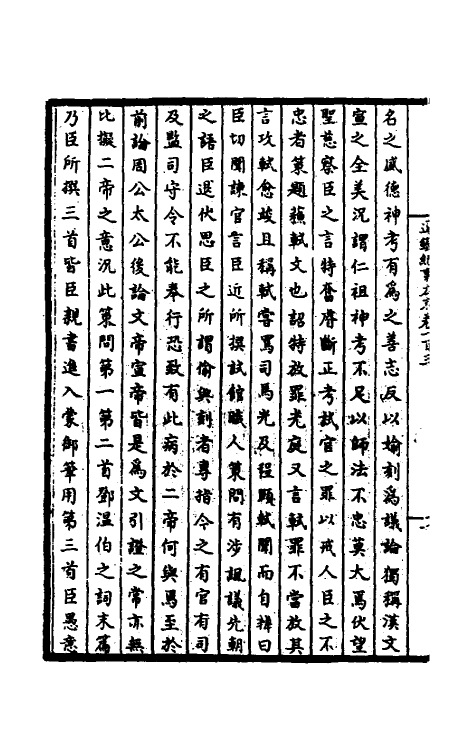 名之盛德神考有為之善志反以媮刻為議論獨稱漢文
宣之全美況謂仁祖神考不足以師法不忠莫大焉伏望
聖慈察臣之言特奮睿斷正考試官之罪以戒人臣之不
忠者策題蘇軾文也詔特放罪光庭又言軾罪不當放其
言攻軾愈峻且稱軾嘗罵司馬光及程頤軾聞而自辨曰
臣切聞諫官言臣近所撰試館職人策問有涉諷議先朝
之語臣退伏思臣之所謂偷與刻者專指今之有官有司
及監司守令不能奉行恐致有此病於二帝何與焉至於
前論周公太公後論文帝宣帝皆是為文引證之常亦無
比擬二帝之意況此策問第一第二首鄧溫伯之詞末篇
乃臣所撰三首皆臣親書進入蒙御筆用第三首臣愚意